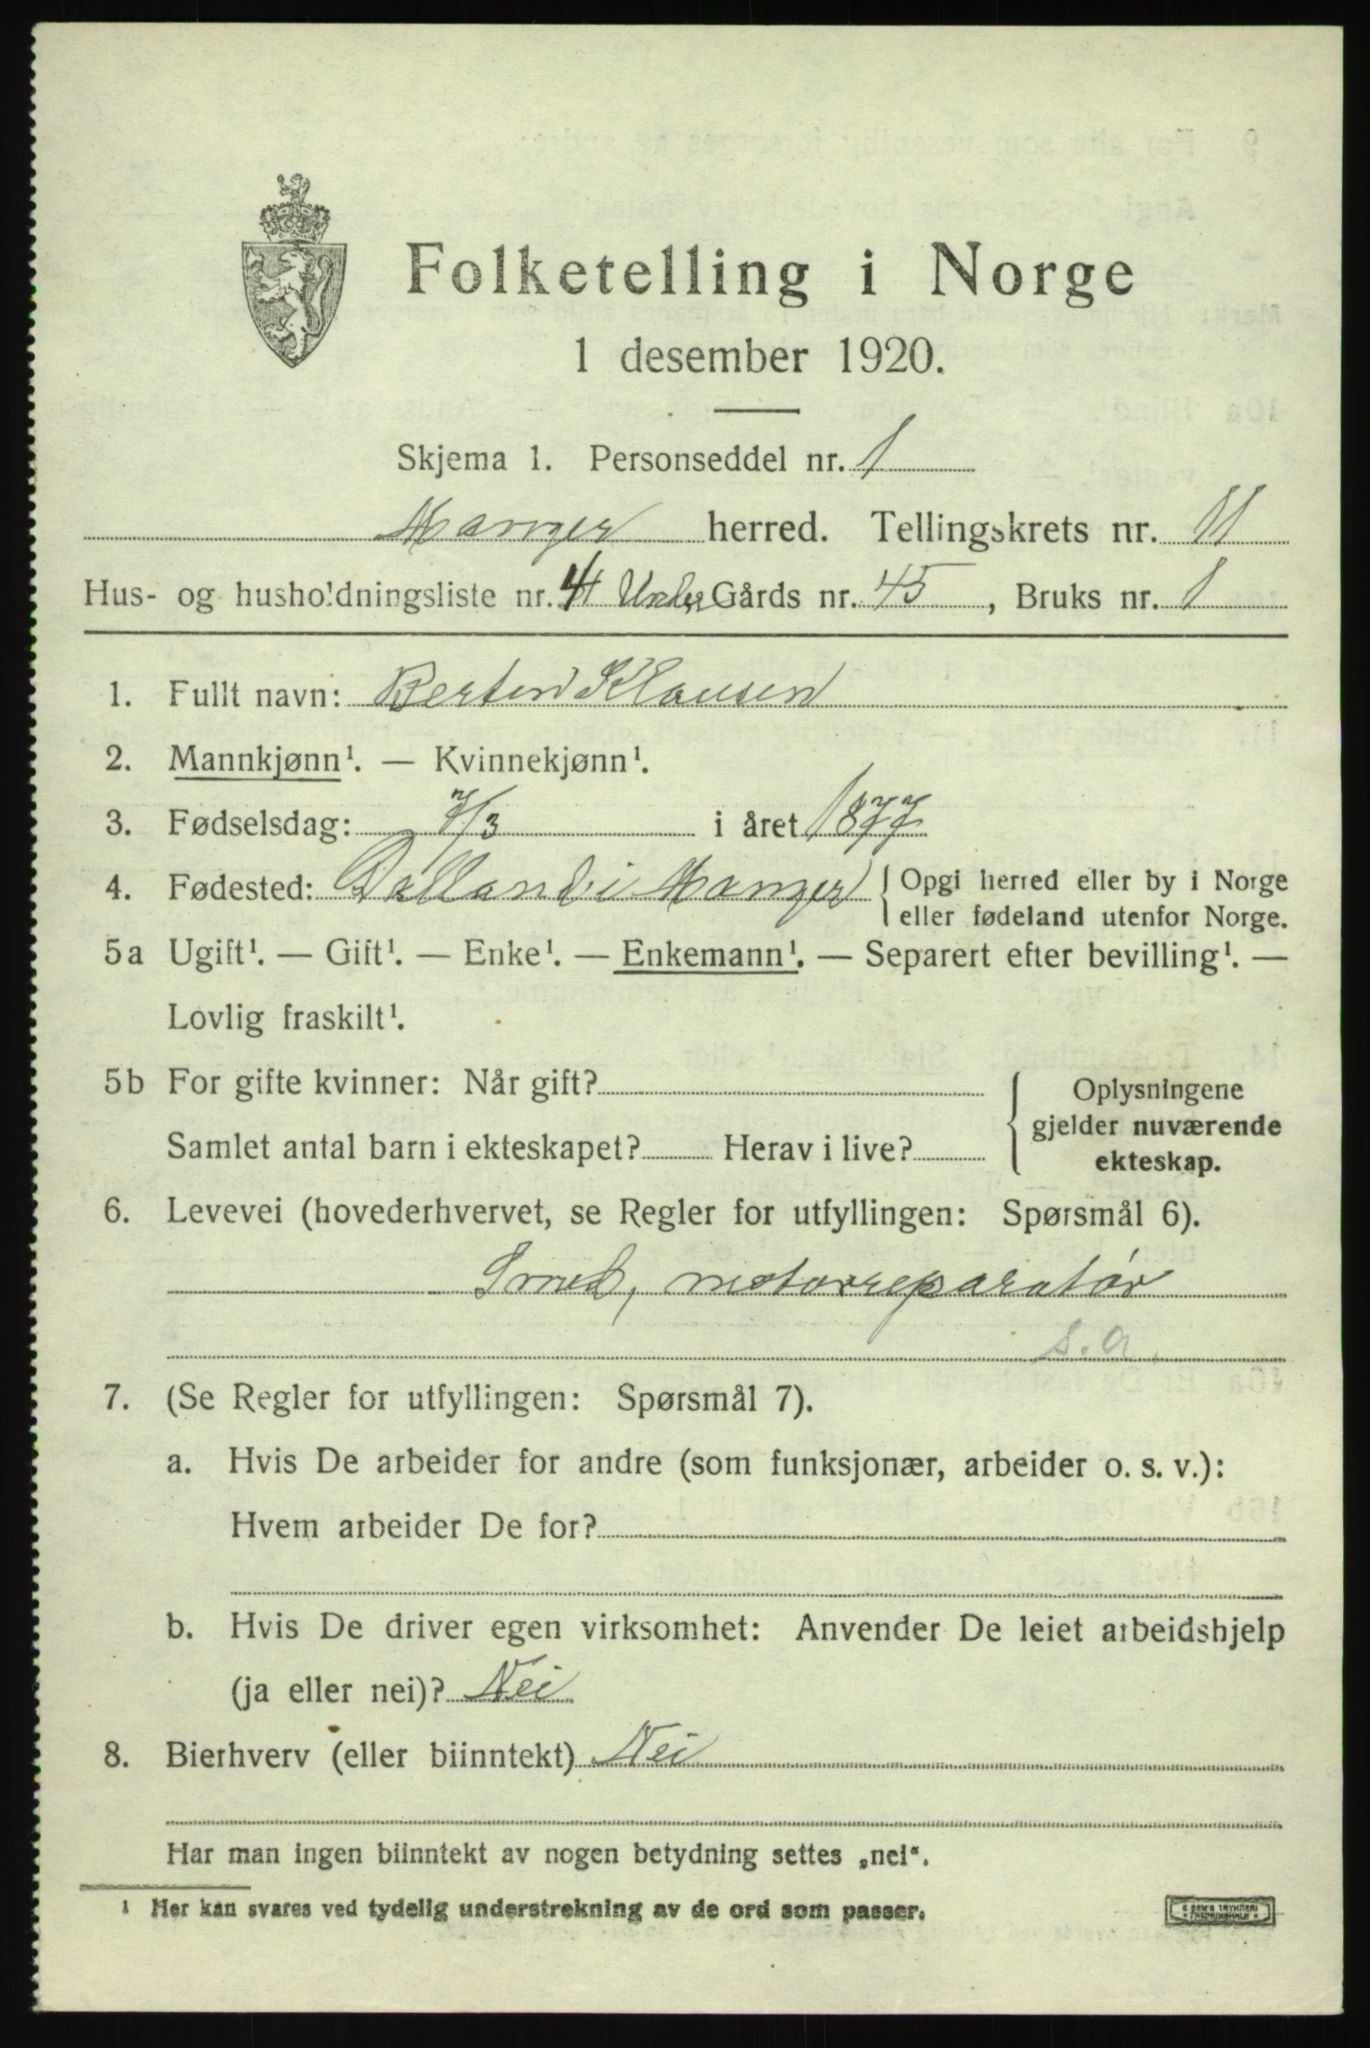 Folketelling i Norge
1 desember 1920.
Skjema 1. Personseddel nr. 1
Manger herred. Tellingskrets nr. 11
Hus- og husholdningsliste nr. 4 Under Gårds nr. 45, Bruks nr. 1
1. Fullt navn: Bertin Klausen
2. Mannkjønn¹. — Kvinnekjønn¹.
3. Fødselsdag: 7/3 i året 1877
4. Fødested: Dalland i Manger { Opgi herred eller by i Norge
eller fødeland utenfor Norge.
5a Ugift¹. — Gift¹. — Enke¹. — Enkemann¹. — Separert efter bevilling¹. —
Lovlig fraskilt¹.
5b For gifte kvinner: Når gift? { Oplysningene
gjelder nuværende
Samlet antal barn i ekteskapet? Herav i live?
ekteskap.
6. Levevei (hovederhvervet, se Regler for utfyllingen: Spørsmål 6).
Smed, motorreparatør
s.a.
7. (Se Regler for utfyllingen: Spørsmål 7).
a. Hvis De arbeider for andre (som funksjonær, arbeider o. s. v.):
Hvem arbeider De for?
b. Hvis De driver egen virksomhet: Anvender De leiet arbeidshjelp
(ja eller nei)? Nei
8. Bierhverv (eller biinntekt) Nei
Har man ingen biinntekt av nogen betydning settes „nei“.
¹ Her kan svares ved tydelig understrekning av de ord som passer.